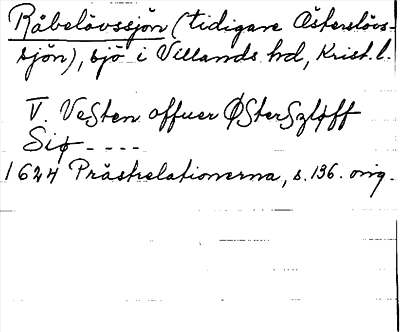 Råbelövssjön (tidigare Österslövs-
sjön), sjö i Villands hd, Krist. l.
V. VeSten offuer ØSterSzløff
Siø - - - -
1624 Prästrelationerna, s. 136. orig.